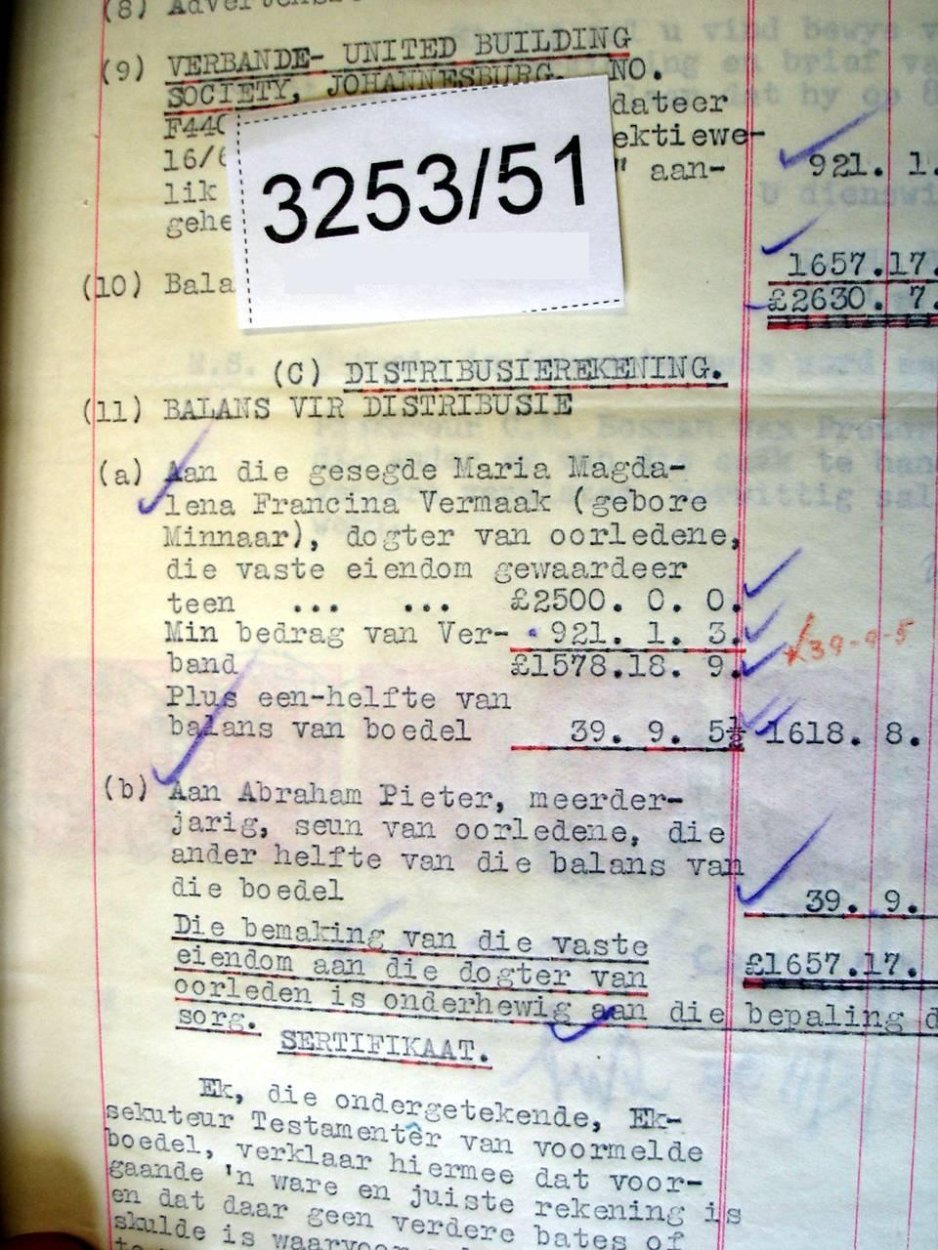 (8)
(9) VERBANDE- UNITED BUILDING
SOCIETY, JOHANNESBURG. NO.
F440 dateer
16/6 ektiewe-
lik " aan-
gehe 921. 1.
3253/51
1657.17.
(10) Bala £2630. 7.
(C) DISTRIBUSIEREKENING.
(11) BALANS VIR DISTRIBUSIE
(a) Aan die gesegde Maria Magda-
lena Francina Vermaak (gebore
Minnaar), dogter van oorledene,
die vaste eiendom gewaardeer
teen ... ... £2500. 0. 0.
Min bedrag van Ver- 921. 1. 3.
band £1578.18. 9.
39-9-5
Plus een-helfte van
balans van boedel 39. 9. 5½ 1618. 8.
(b) Aan Abraham Pieter, meerder-
jarig, seun van oorledene, die
ander helfte van die balans van
die boedel 39. 9.
Die bemaking van die vaste
eiendom aan die dogter van £1657.17.
oorleden is onderhewig aan die bepaling d
sorg.
SERTIFIKAAT.
Ek, die ondergetekende, Ek-
sekuteur Testamentêr van voormelde
boedel, verklaar hiermee dat voor-
gaande 'n ware en juiste rekening is
en dat daar geen verdere bates of
skulde is